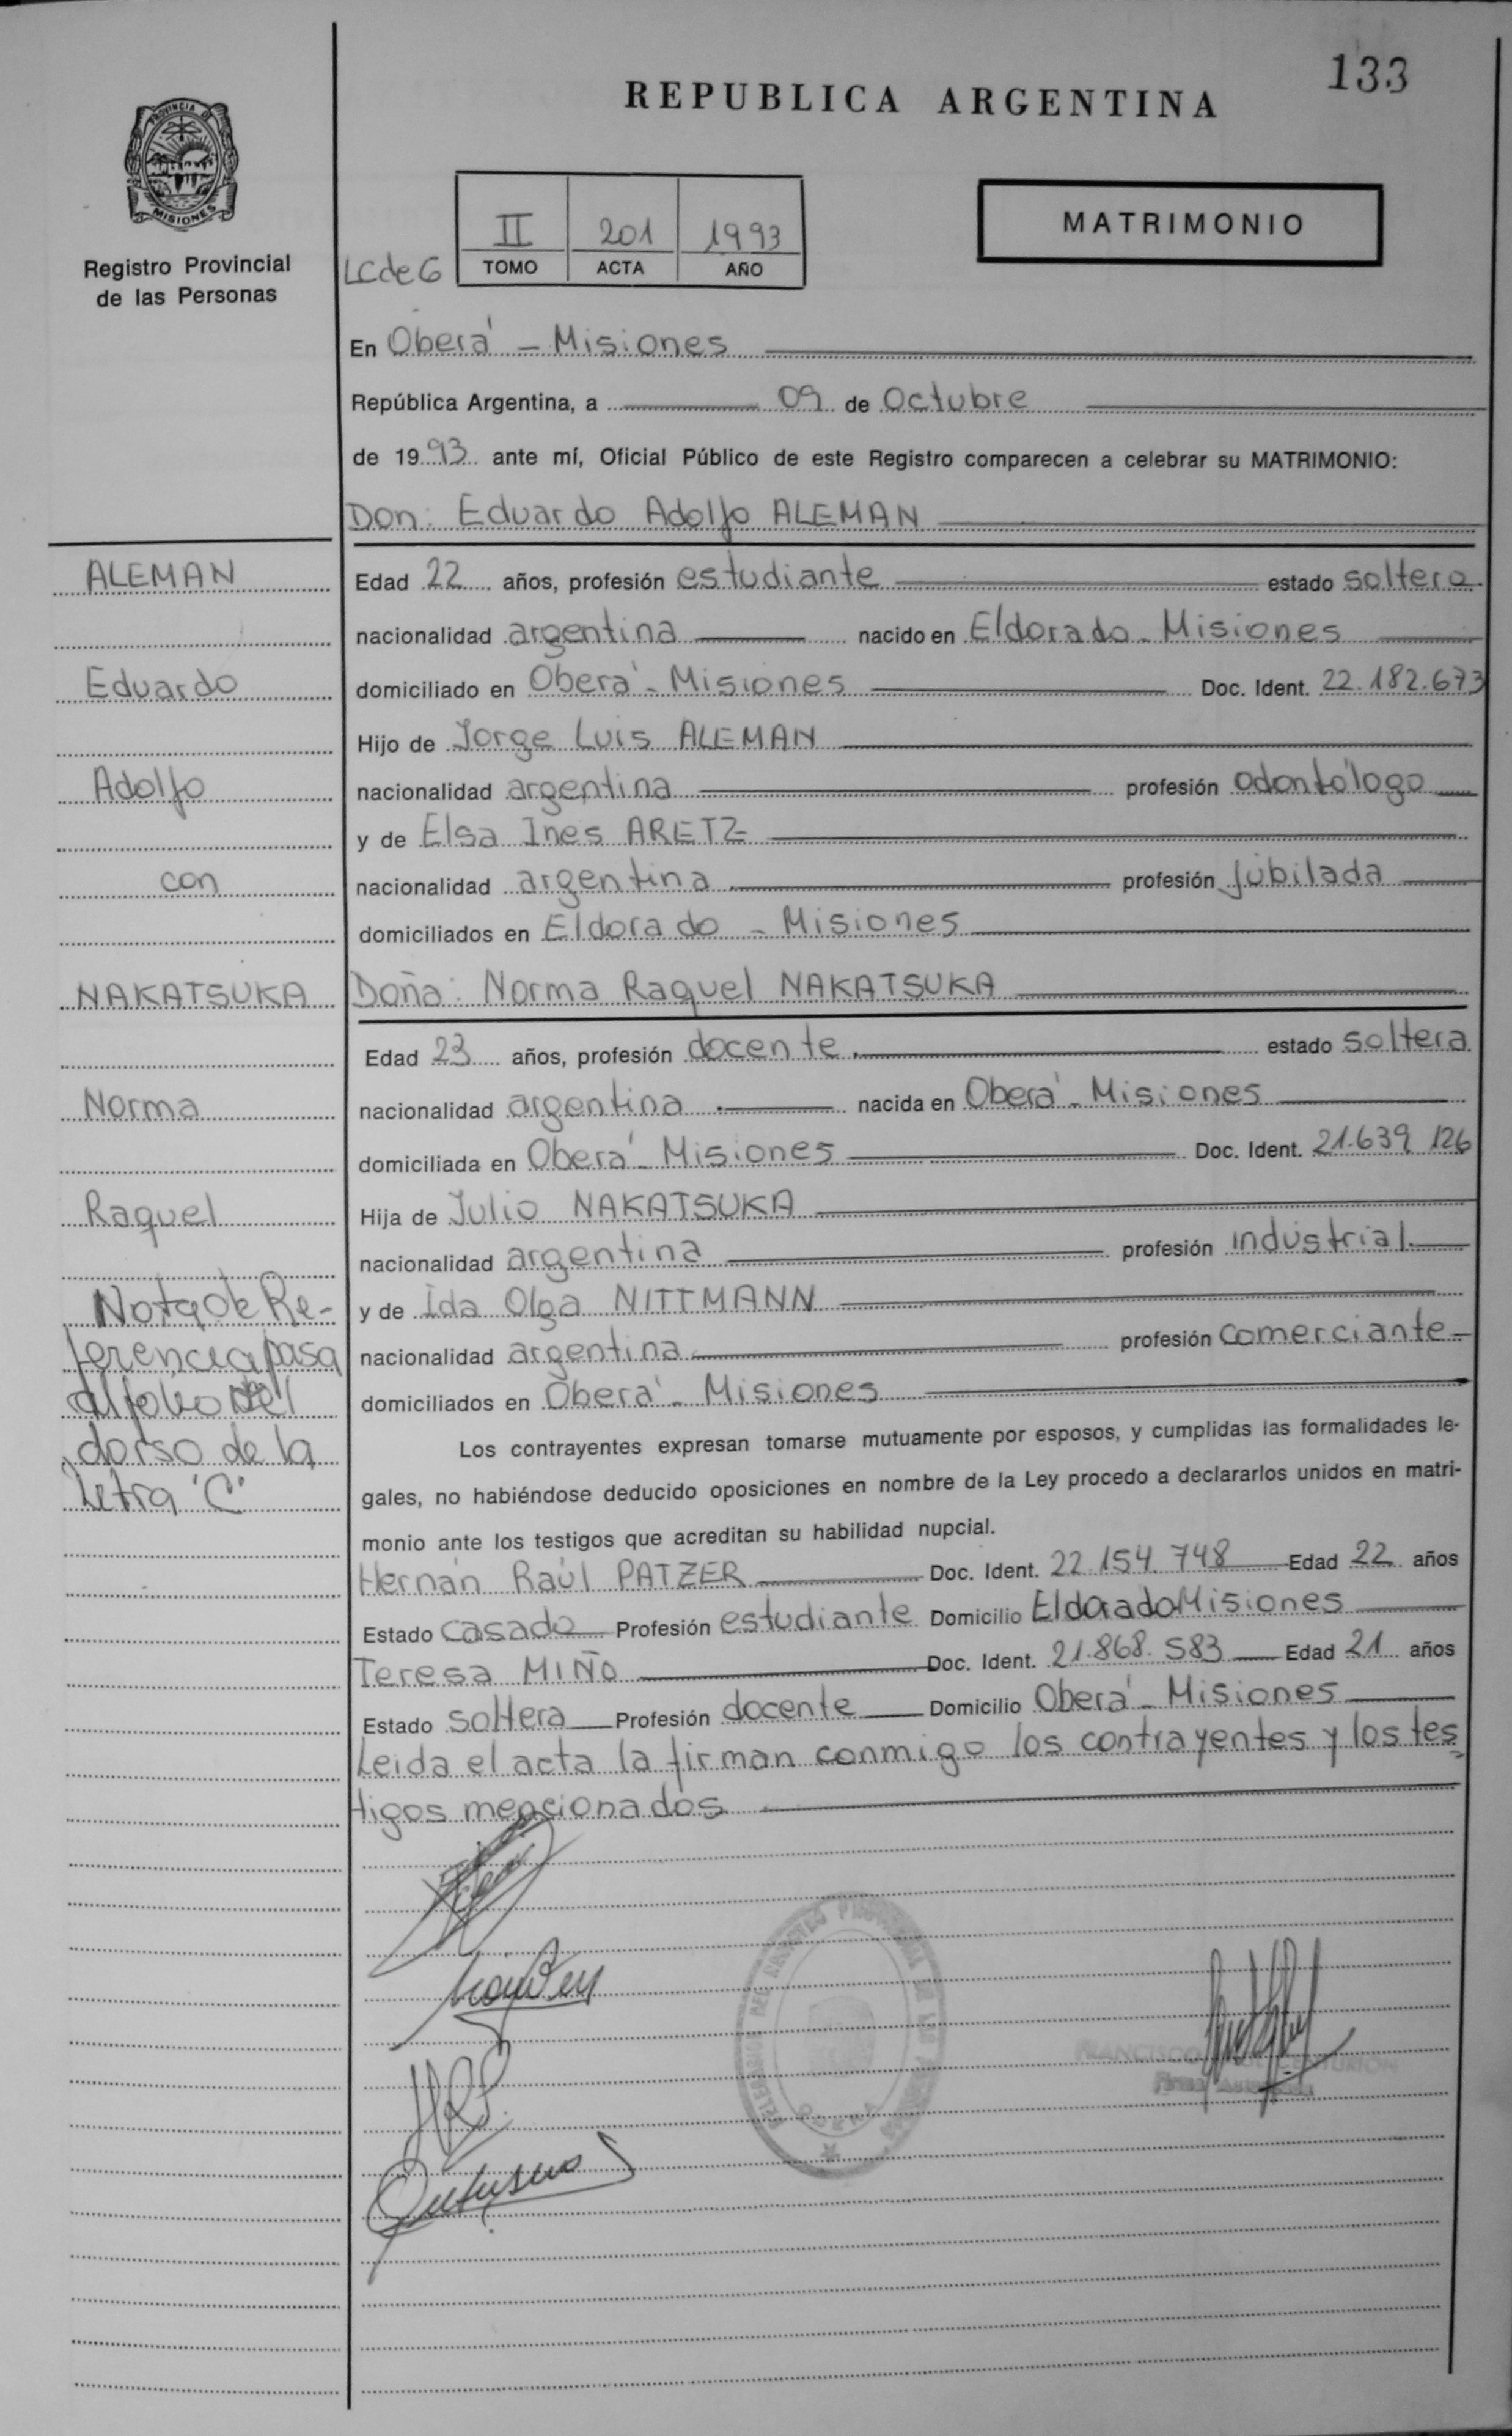 133
REPUBLICA ARGENTINA
PROVINCIA D
MISIONES
Registro Provincial
de las Personas
MATRIMONIO
LCde6
II 201 1993
TOMO ACTA AÑO
En Oberá - Misiones
República Argentina, a 09 de Octubre
de 1993 ante mí, Oficial Público de este Registro comparecen a celebrar su MATRIMONIO:
Don: Eduardo Adolfo ALEMAN
Edad 22 años, profesión estudiante estado soltero
nacionalidad argentina nacido en Eldorado - Misiones
domiciliado en Oberá - Misiones Doc. Ident. 22.182.673
Hijo de Jorge Luis ALEMAN
nacionalidad argentina profesión odontólogo
y de Elsa Ines ARETZ
nacionalidad argentina profesión jubilada
domiciliados en Eldorado - Misiones
Doña: Norma Raquel NAKATSUKA
Edad 23 años, profesión docente estado soltera
nacionalidad argentina nacida en Oberá - Misiones
domiciliada en Oberá - Misiones Doc. Ident. 21.639 126
Hija de Julio NAKATSUKA
nacionalidad argentina profesión industrial
y de Ida Olga NITTMANN
nacionalidad argentina profesión comerciante
domiciliados en Oberá - Misiones
Los contrayentes expresan tomarse mutuamente por esposos, y cumplidas las formalidades le-
gales, no habiéndose deducido oposiciones en nombre de la Ley procedo a declararlos unidos en matri-
monio ante los testigos que acreditan su habilidad nupcial.
Hernán Raúl PATZER Doc. Ident. 22.154.748 Edad 22 años
Estado casado Profesión estudiante Domicilio Eldorado Misiones
Teresa MIÑO Doc. Ident. 21.868.583 Edad 21 años
Estado soltera Profesión docente Domicilio Oberá - Misiones
Leida el acta la firman conmigo los contrayentes y los tes
tigos mencionados
ALEMAN
Eduardo
Adolfo
con
NAKATSUKA
Norma
Raquel
Nota de Re-
ferencia pasa
al folio del
dorso de la
Letra "C"
FRANCISCO CENTURION
Firma Autorizada